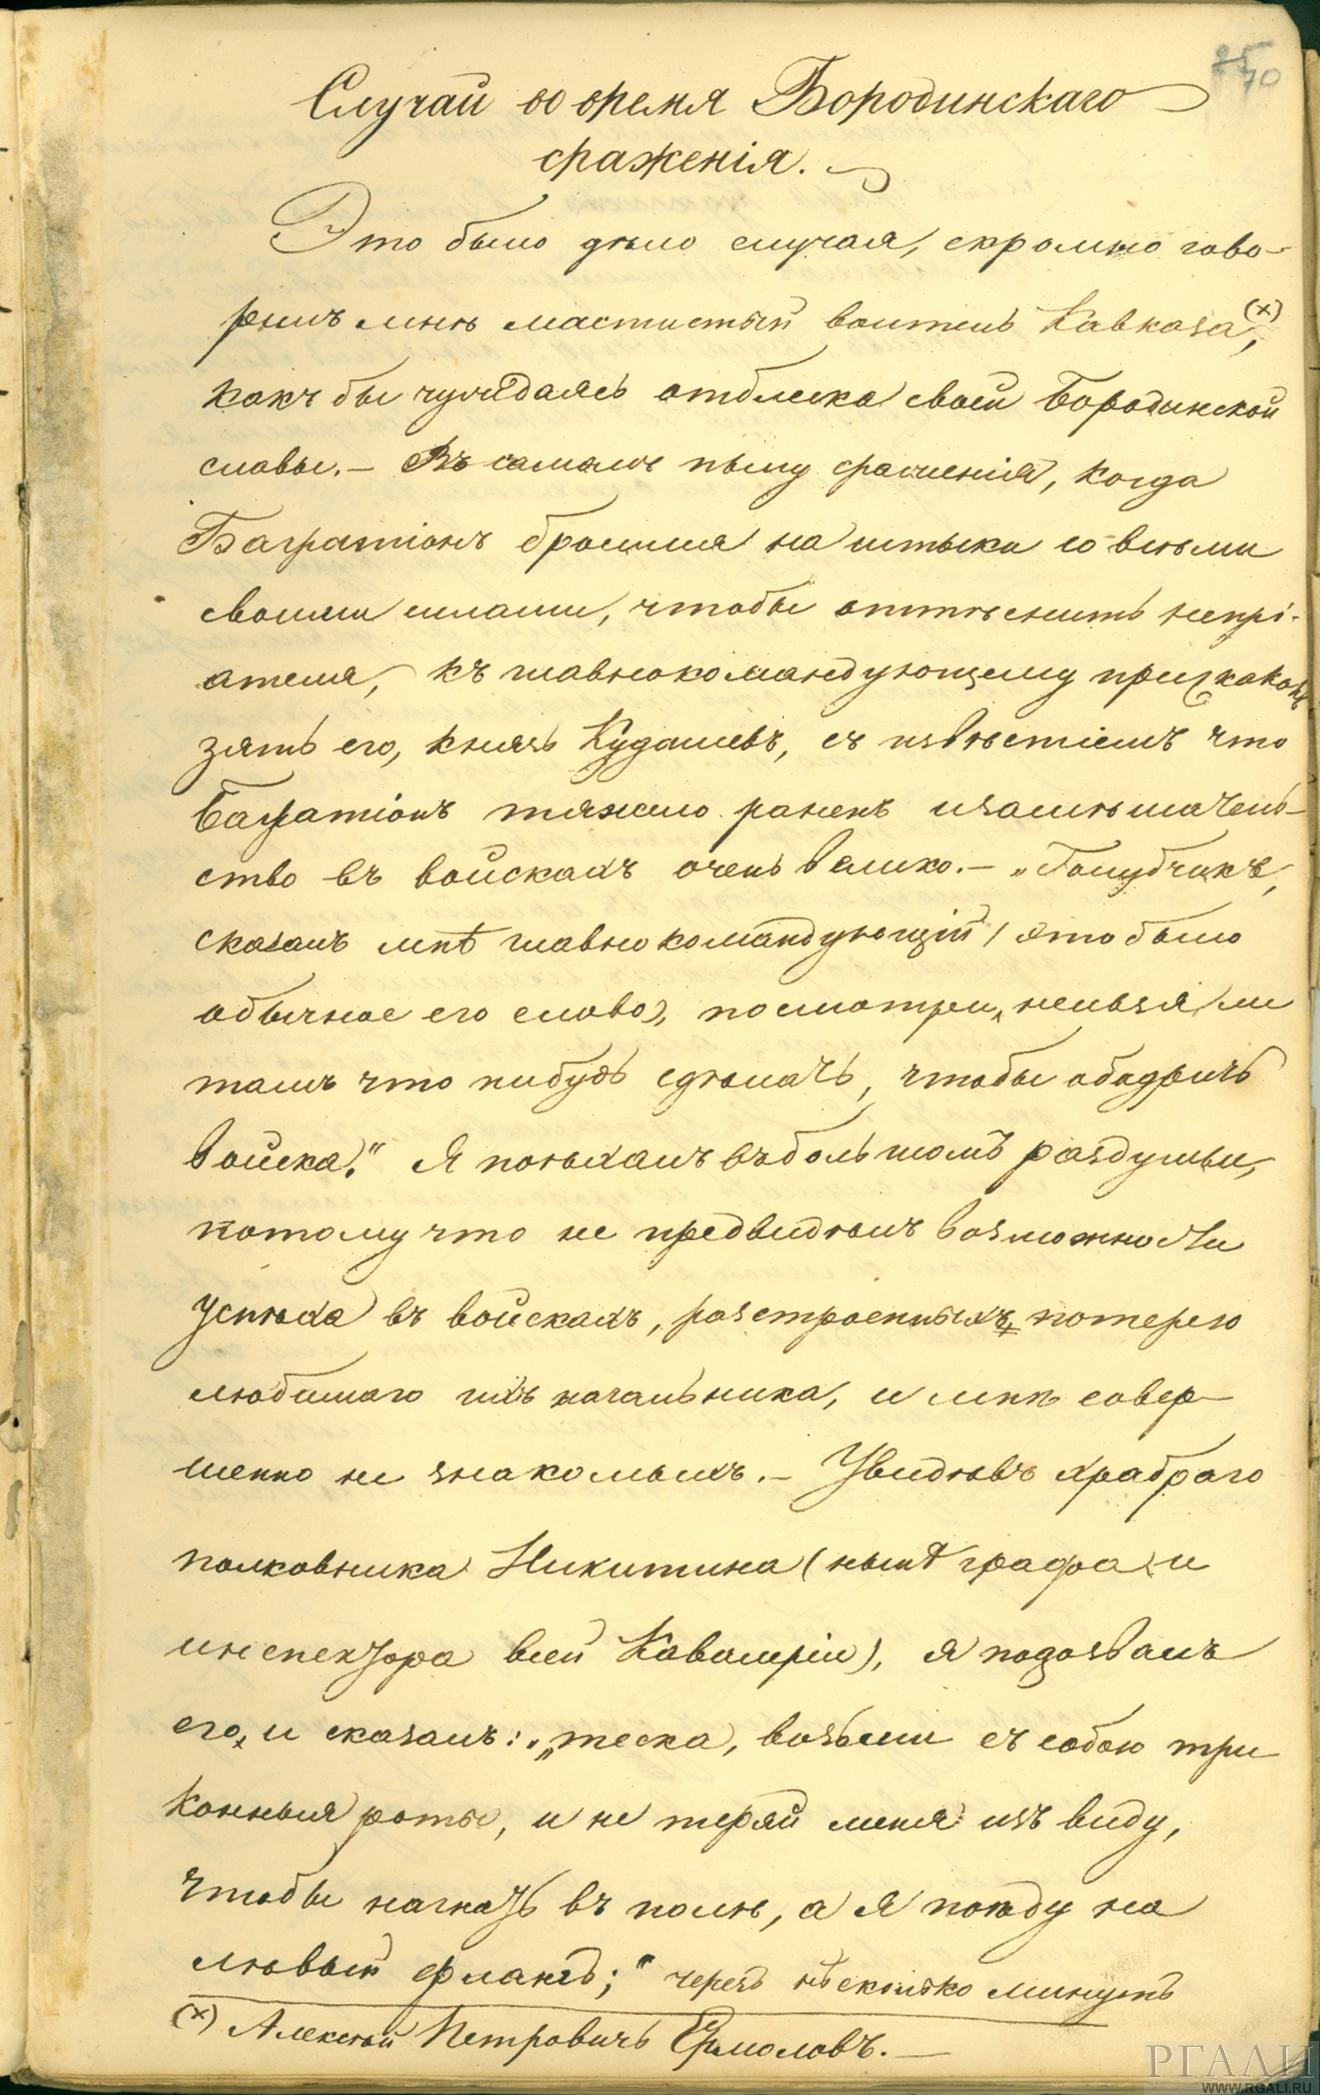 25
70
Случай во время Бородинскаго
сраженія.
Это было дѣло случая, скромно гово-
рилъ мнѣ маститый воитель Кавказа (х),
какъ бы чуждаясь отблеска своей Бородинской
славы. — Въ самомъ пылу сраженія, когда
Багратіонъ бросился на штыки со всѣми
своими силами, чтобы оттѣснить непрі-
ятеля, къ главнокомандующему прискакалъ
зять его, князь Кудашевъ, съ извѣстіемъ что
Багратіонъ тяжело раненъ и замѣшатель-
ство въ войскахъ очень велико. — „Голубчикъ,
сказалъ мнѣ главнокомандующій / это было
обычное его слово), посмотри, нельзя ли
тамъ что нибудь сдѣлать, чтобы ободрить
войска." Я поѣхалъ въ большомъ раздумьи,
потому что не предвидѣлъ возможности
успѣха въ войскахъ, разстроенныхъ потерею
любимаго ихъ начальника, и мнѣ совер-
шенно не знакомыхъ. — Увидѣвъ храбраго
полковника Никитина (нынѣ графа и
инспектора всей Кавалеріи), я подозвалъ
его, и сказалъ: „тески, возьми съ собою три
конныя роты, и не теряй меня изъ виду,
чтобы нагнать въ полѣ, а я поѣду на
лѣвый флангъ;" чрезъ нѣсколько минутъ
(х) Алексѣй Петровичъ Ермоловъ. —
РГАЛИ
WWW.RGALI.RU